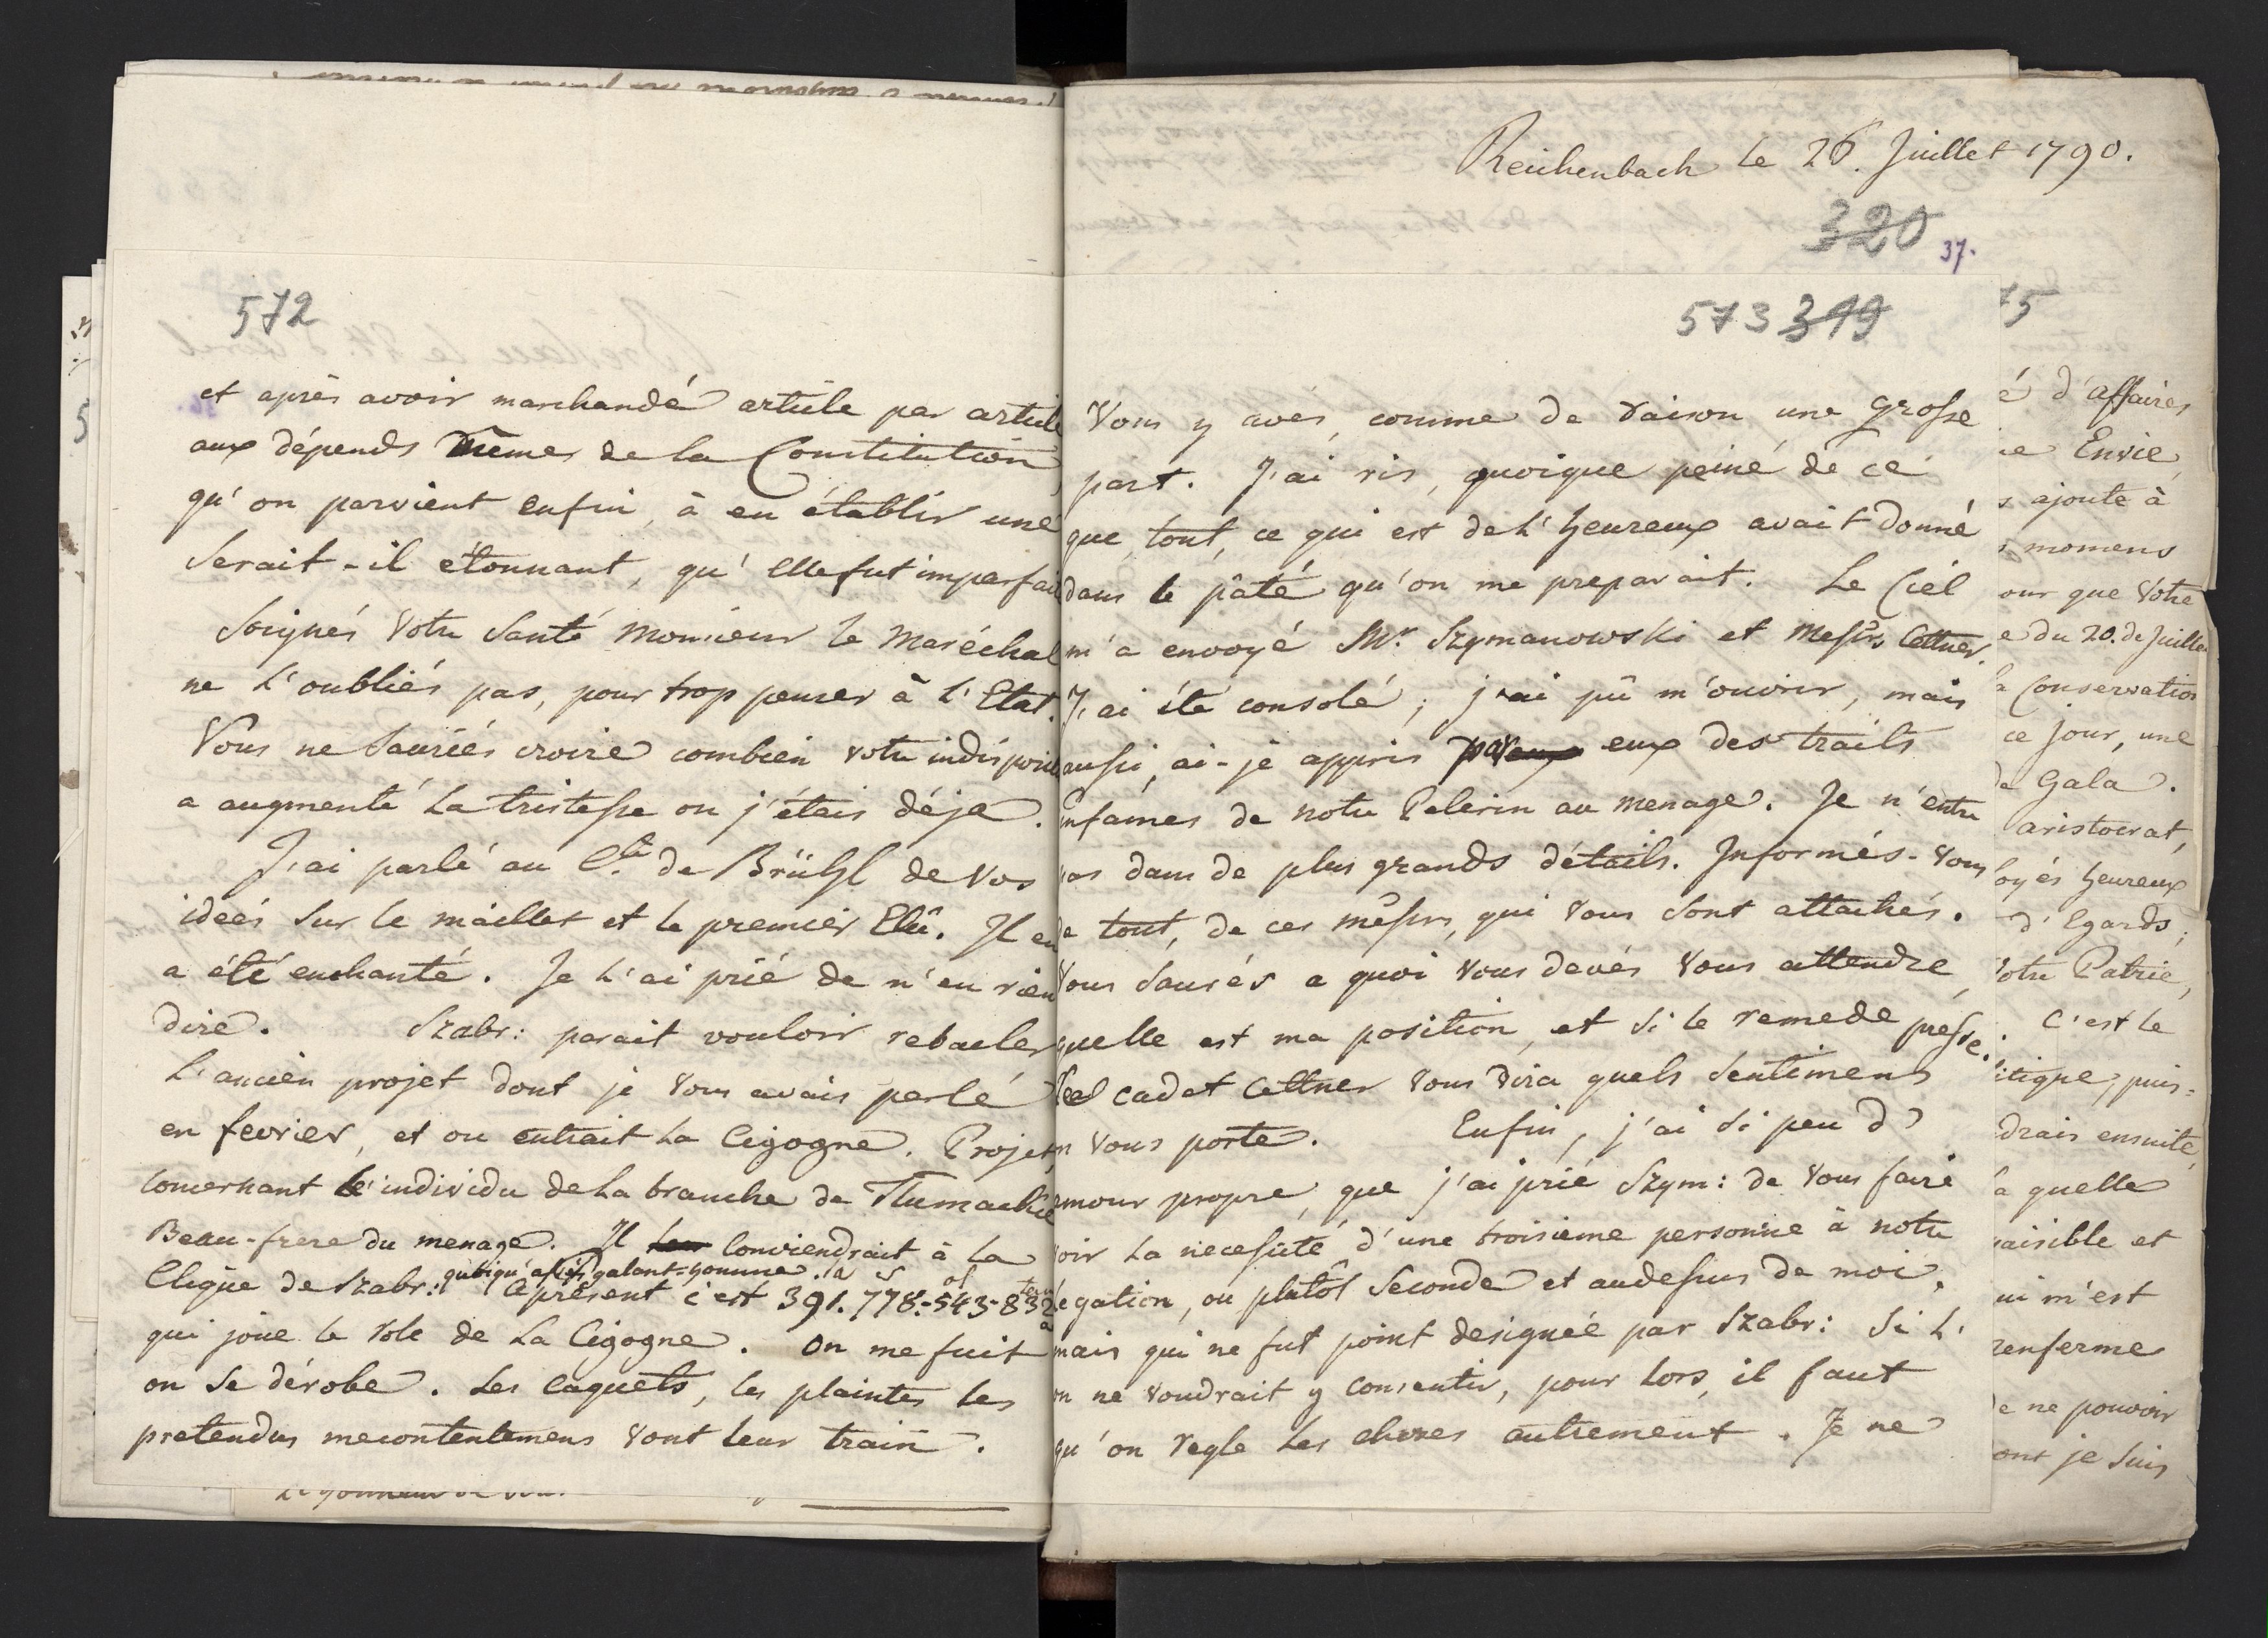 572
et après avoir marchandé article par article
aux dépends mêmes de la Constitution
qu'on parvient enfin, à en établir une
Serait-il étonnant, qu'elle fut imparfai
Soignés Votre Santé Monsieur le Maréchal
ne l'oubliés pas, pour trop penser à l'Etat.
Vous ne Sauriés croire combien votre indispoi
a augmenté la tristesse ou j'étais déja.
J'ai parlé au Cte de Brühl de Vos
ideés Sur le maillet et le premier Elû. Il en
a été enchanté. Je l'ai prié de n'en rien
dire. Szabr: parait vouloir rebacler
l'ancien projet dont je Vous avais parlé
en fevrier, et ou entrait la Cigogne. Projet
Concernant l'individu de la branche de Tlumackie
Beau-frere du menage. Il Conviendrait à la
Clique de Szabr: quoiqu'assés galant-homme. Apresent c'est 391. 778.-543-832
qui joue le role de la Cigogne. On me fuit
on Se dérobe. Les Caquets, les plaintes les
pretendus mecontentemens vont leur train.
Reichenbach le 26. Juillet 1790.
320
37.
573 319
Vous y avés, comme de raison une grosse
part. J'ai ris, quoique peiné de ce
que, tout, ce qui est de l'heureux avait donné
dans le pâté qu'on me preparait. Le Ciel
m'a envoyé Mr. Szymanowski et Messrs Cettner.
J'ai été consolé; j'ai pû m'ouvrir, mais
aussi, ai-je appris par eux des traits
infames de notre Pelerin au menage. Je n'entre
pas dans de plus grands détails. Informés-Vous
de tout, de ces messrs, qui Vous Sont attachés.
Vous Saurés a quoi Vous devés Vous attendre,
quelle est ma position, et Si le remede presse.
Le cadet Cettner Vous dira quels Sentimens
on Vous porte. Enfin, j'ai Si peu d'
amour propre, que j'ai prié Szym: de Vous faire
voir la necessité d'une troisieme personne à notre
legation, ou plutôt Seconde et audessus de moi,
mais qui ne fut point designée par Szabr: Si l'
on ne voudrait y consentir, pour lors, il faut
qu'on regle les choses autrement. Je ne
75
é d'affaires
ne Envie
s ajoute à
s momens
our que Votre
e du 20. de Juillet
la Conservation
ce jour, une
de Gala.
aristocrat,
oyés heureux
d'Egards;
Votre Patrie,
C'est le
itique, puis-
drais ensuite,
la quelle
paisible et
ui m'est
renferme
de ne pouvoir
ont je Suis